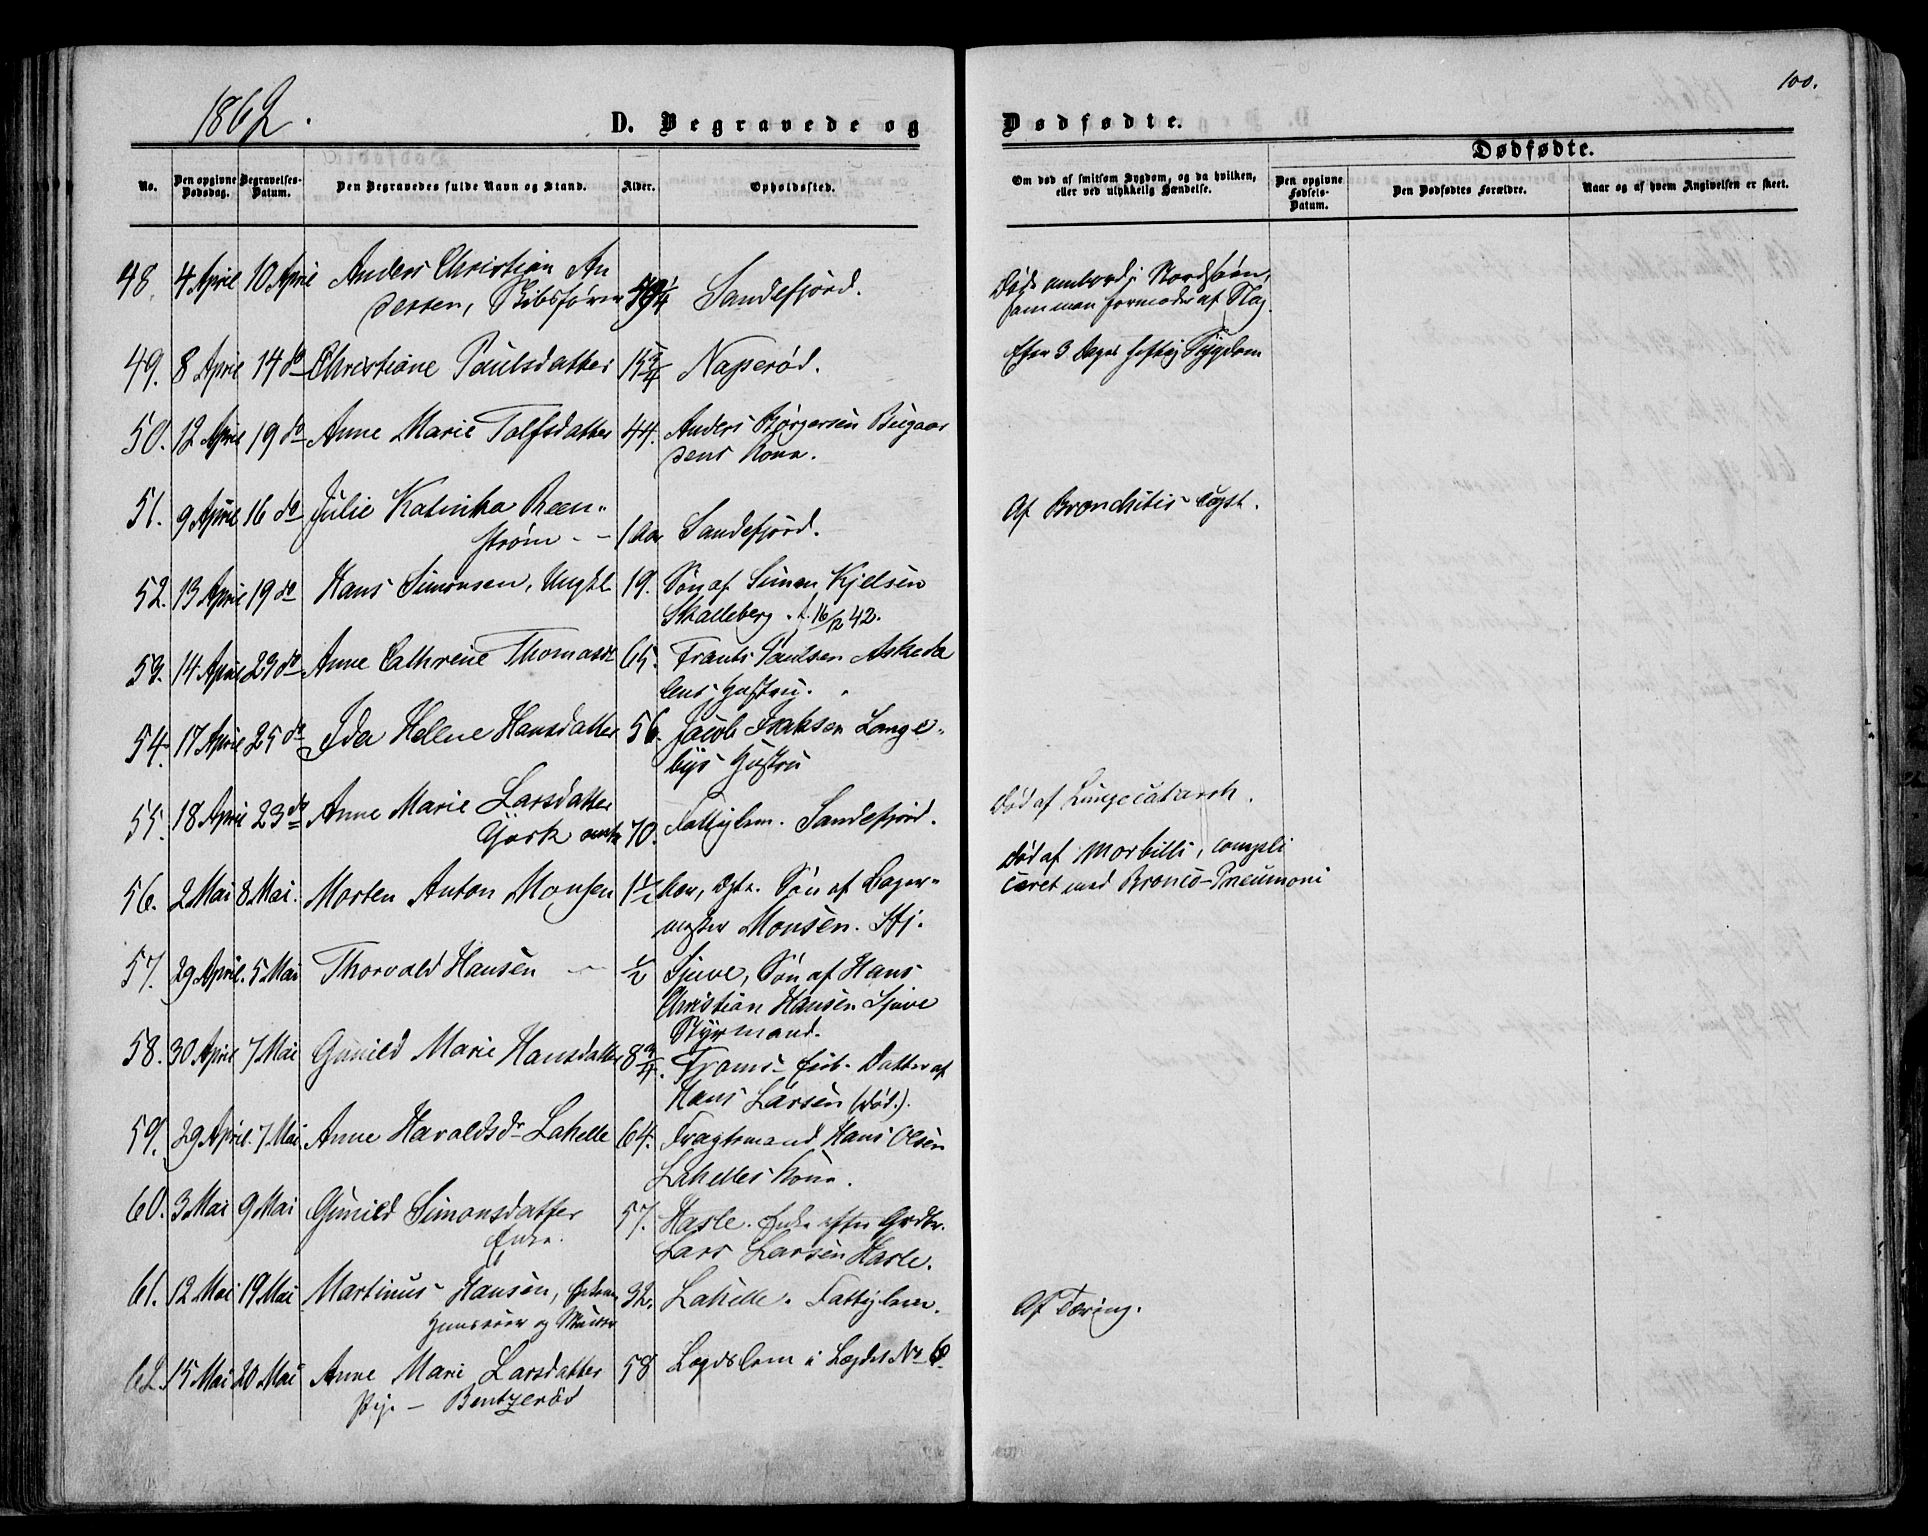 1862.
100.
D. Begravede og Dødfødte.
Dødfødte.
No.
Den opgivne Dødsdag.
Begravelses-Datum.
Den Begravedes fulde Navn og Stand.
Alder.
Opholdssted.
Om død af smitsom Sygdom, og da hvilken, eller ved ulykkelig Hændelse.
Den opgivne Fødsels-Datum.
Den Dødfødtes Forældre.
Naar og af hvem Angivelsen er skeet.
48. 4 April 10 April Anders Christian An Sandefjord. Død ombord i Nordsøen,
dersen, Skibsfører som man formoder af Slag.
49. 8 April 14 do Christiane Paulsdatter 15 3/4 Naperød. Efter 3 Dages heftig Sygdom
50. 12 April 19 do Anne Marie Tolfsdatter 44. Anders Børgersen Bugaar
dens Kone.
51. 9 April 16 do Julie Katinka Ræn-
strøm - - 1 Aar Sandefjord. Af Bronchitis
52. 13 April 19 do Hans Simonsen, Ungkl 19. Søn af Simen Kjelsen
Skalleberg. f. 16/12 42.
53. 14 April 23 do Anne Cathrene Thomasd 65. Frants Paulsen Askeda
lens Hustru.
54. 17 April 25 do Ida Helene Hansdatter 56. Jacob Isaksen Lange-
bys Hustru
55. 18 April 23 do Anne Marie Larsdatter Død af Lungecatarrh.
70. Fattiglem. Sandefjord.
56. 2 Mai 8 Mai. Morten Anton Monsen 1 1/2 Aar, ægte Søn af Bager- Død af Morbilli, compli
mester Monsen. Sfj. ceret med Bronco-Pneumoni
57. 29 April. 5 Mai Thorvald Hansen - 1/2 Sjuve, Søn af Hans
Christian Hansen Sjuve
Styrmand.
58. 30 April 7 Mai Gunild Marie Hansdatter 8 3/4. Framnes Datter af
Hans Larsen (død.).
59. 29 April. 7 Mai Anne Haraldsdr Lahelle 64. Fragtemand Hans Olsen
Lahelles Kone.
60. 3 Mai 9 Mai Gunild Simonsdatter 57. Hasle. Enke efter Grdbr.
Enke. Lars Larsen Hasle.
61. 12 Mai 19 Mai Martinus Hansen, 32. Lahelle. Fattiglem. Af Tæring.
og
62. 15 Mai 20 Mai Anne Marie Larsdatter 58 Lægdslem i Lægdet No 6.
Pige - Bentzerød